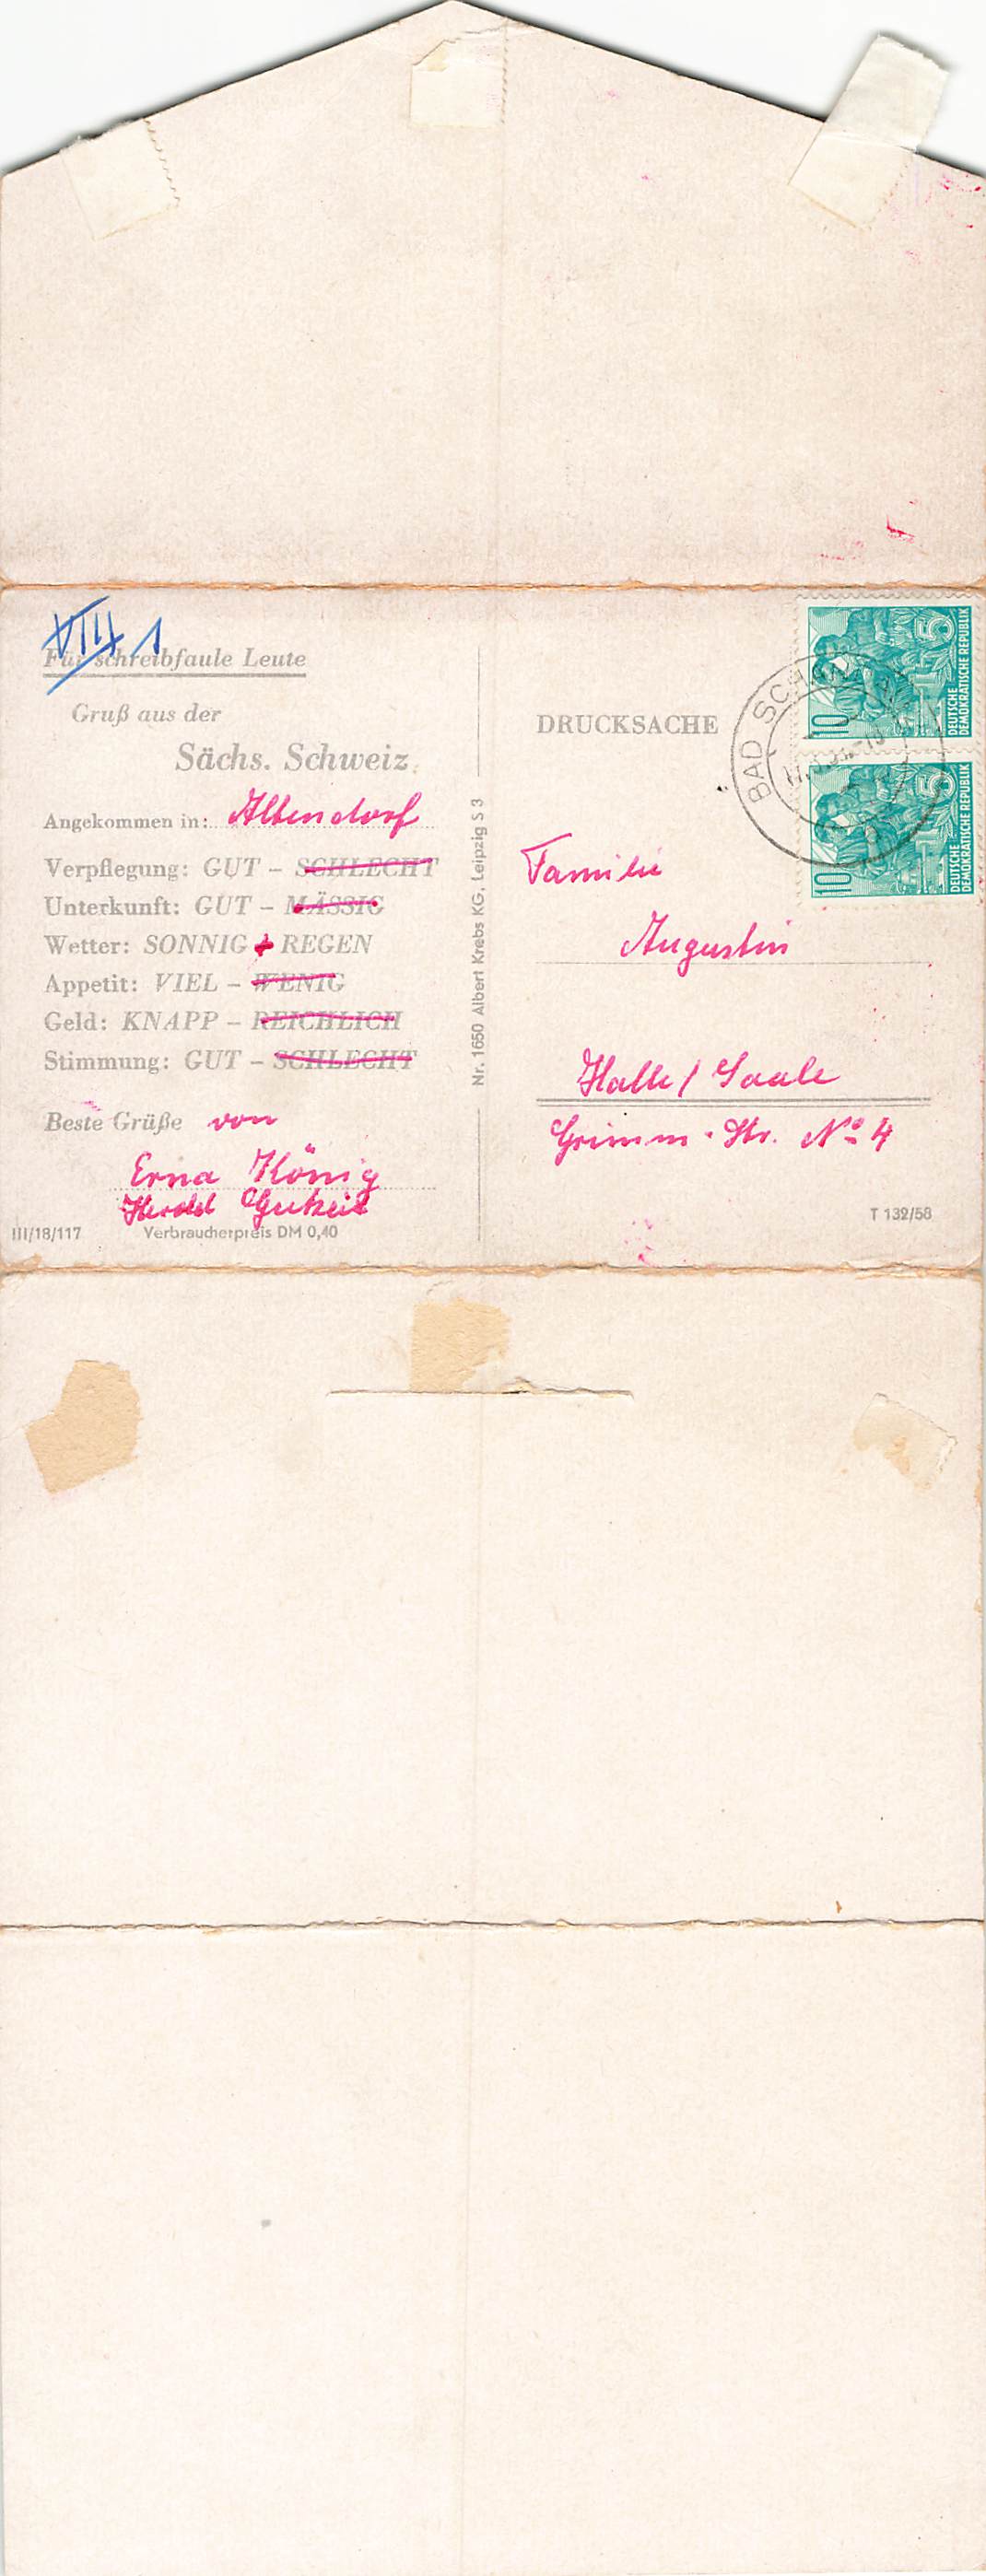 VIII 1
Für schreibfaule Leute
Gruß aus der
Sächs. Schweiz
Angekommen in: Altendorf
Verpflegung: GUT – SCHLECHT
Unterkunft: GUT – MÄSSIG
Wetter: SONNIG + REGEN
Appetit: VIEL – WENIG
Geld: KNAPP – REICHLICH
Stimmung: GUT – SCHLECHT
Beste Grüße von
Erna König
Herold Gutzeit
III/18/117 Verbraucherpreis DM 0,40
Nr. 1650 Albert Krebs KG, Leipzig S 3
DRUCKSACHE
10 5 DEUTSCHE DEMOKRATISCHE REPUBLIK
10 5 DEUTSCHE DEMOKRATISCHE REPUBLIK
BAD
Familie
Augustin
Halle / Saale
Grimm-Str. No 4
T 132/58